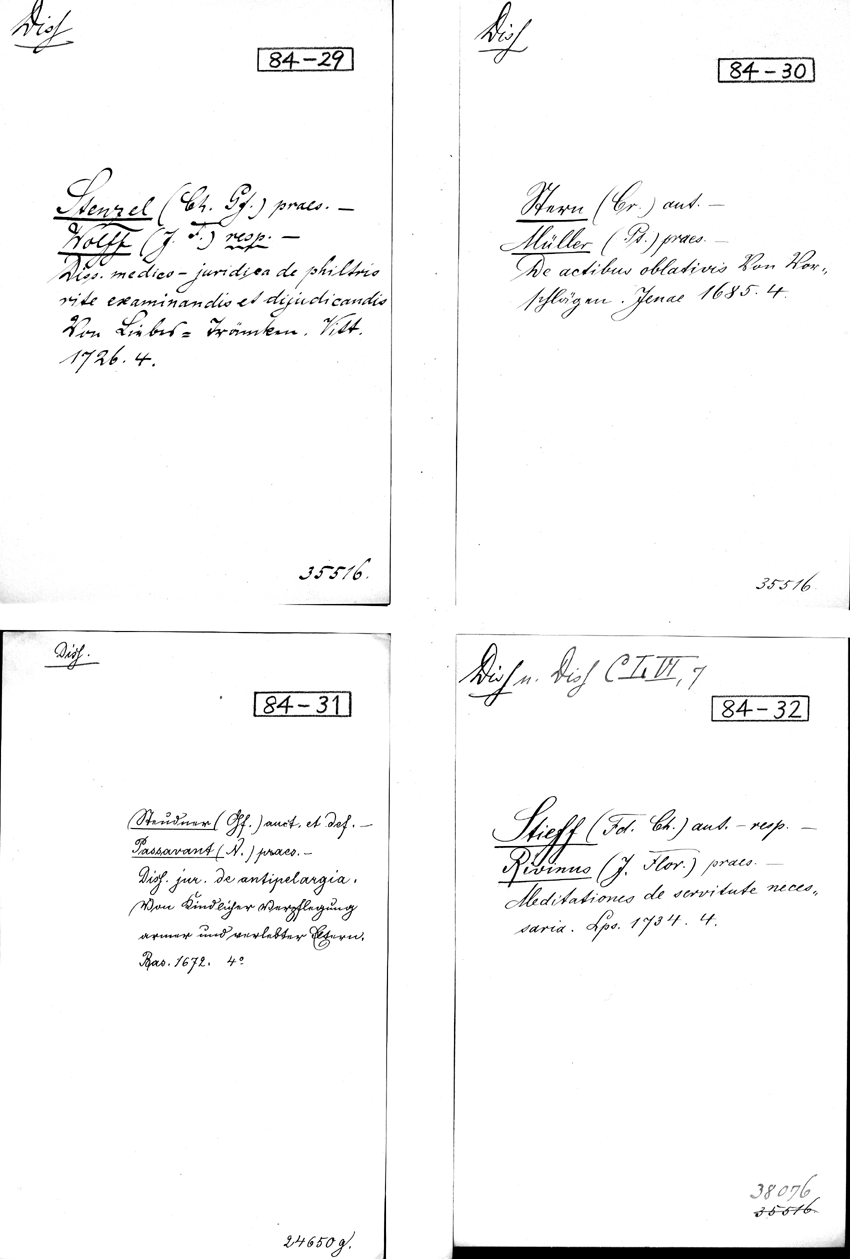 Diss
84-29
Stenzel (Ch. Gf.) praes. —
Wolff (J. F.) resp. —
Diss. medico-juridica de philtris
rite examinandis et dijudicandis
Von Liebes=Träncken. Vitt.
1726. 4.
35516.
Diss
84-30
Stern (Cr.) aut. —
Müller (Pt.) praes. —
De actibus oblativis Von Vor-
schlägen. Jenae 1685. 4.
35516
Diss.
84-31
Steudner (Gf.) auct. et def. —
Passavant (N.) praes. —
Diss. jur. de antipelargia.
Von Kindlicher Verpflegung
armer und verlebter Eltern.
Bas. 1672. 4°
24650 g.
Diss u. Diss C I. VI, 7
84-32
Stieff (Fd. Ch.) aut. - resp. —
Rivinus (J. Flor.) praes. —
Meditationes de servitute neces-
saria. Lps. 1734. 4.
38076
35516